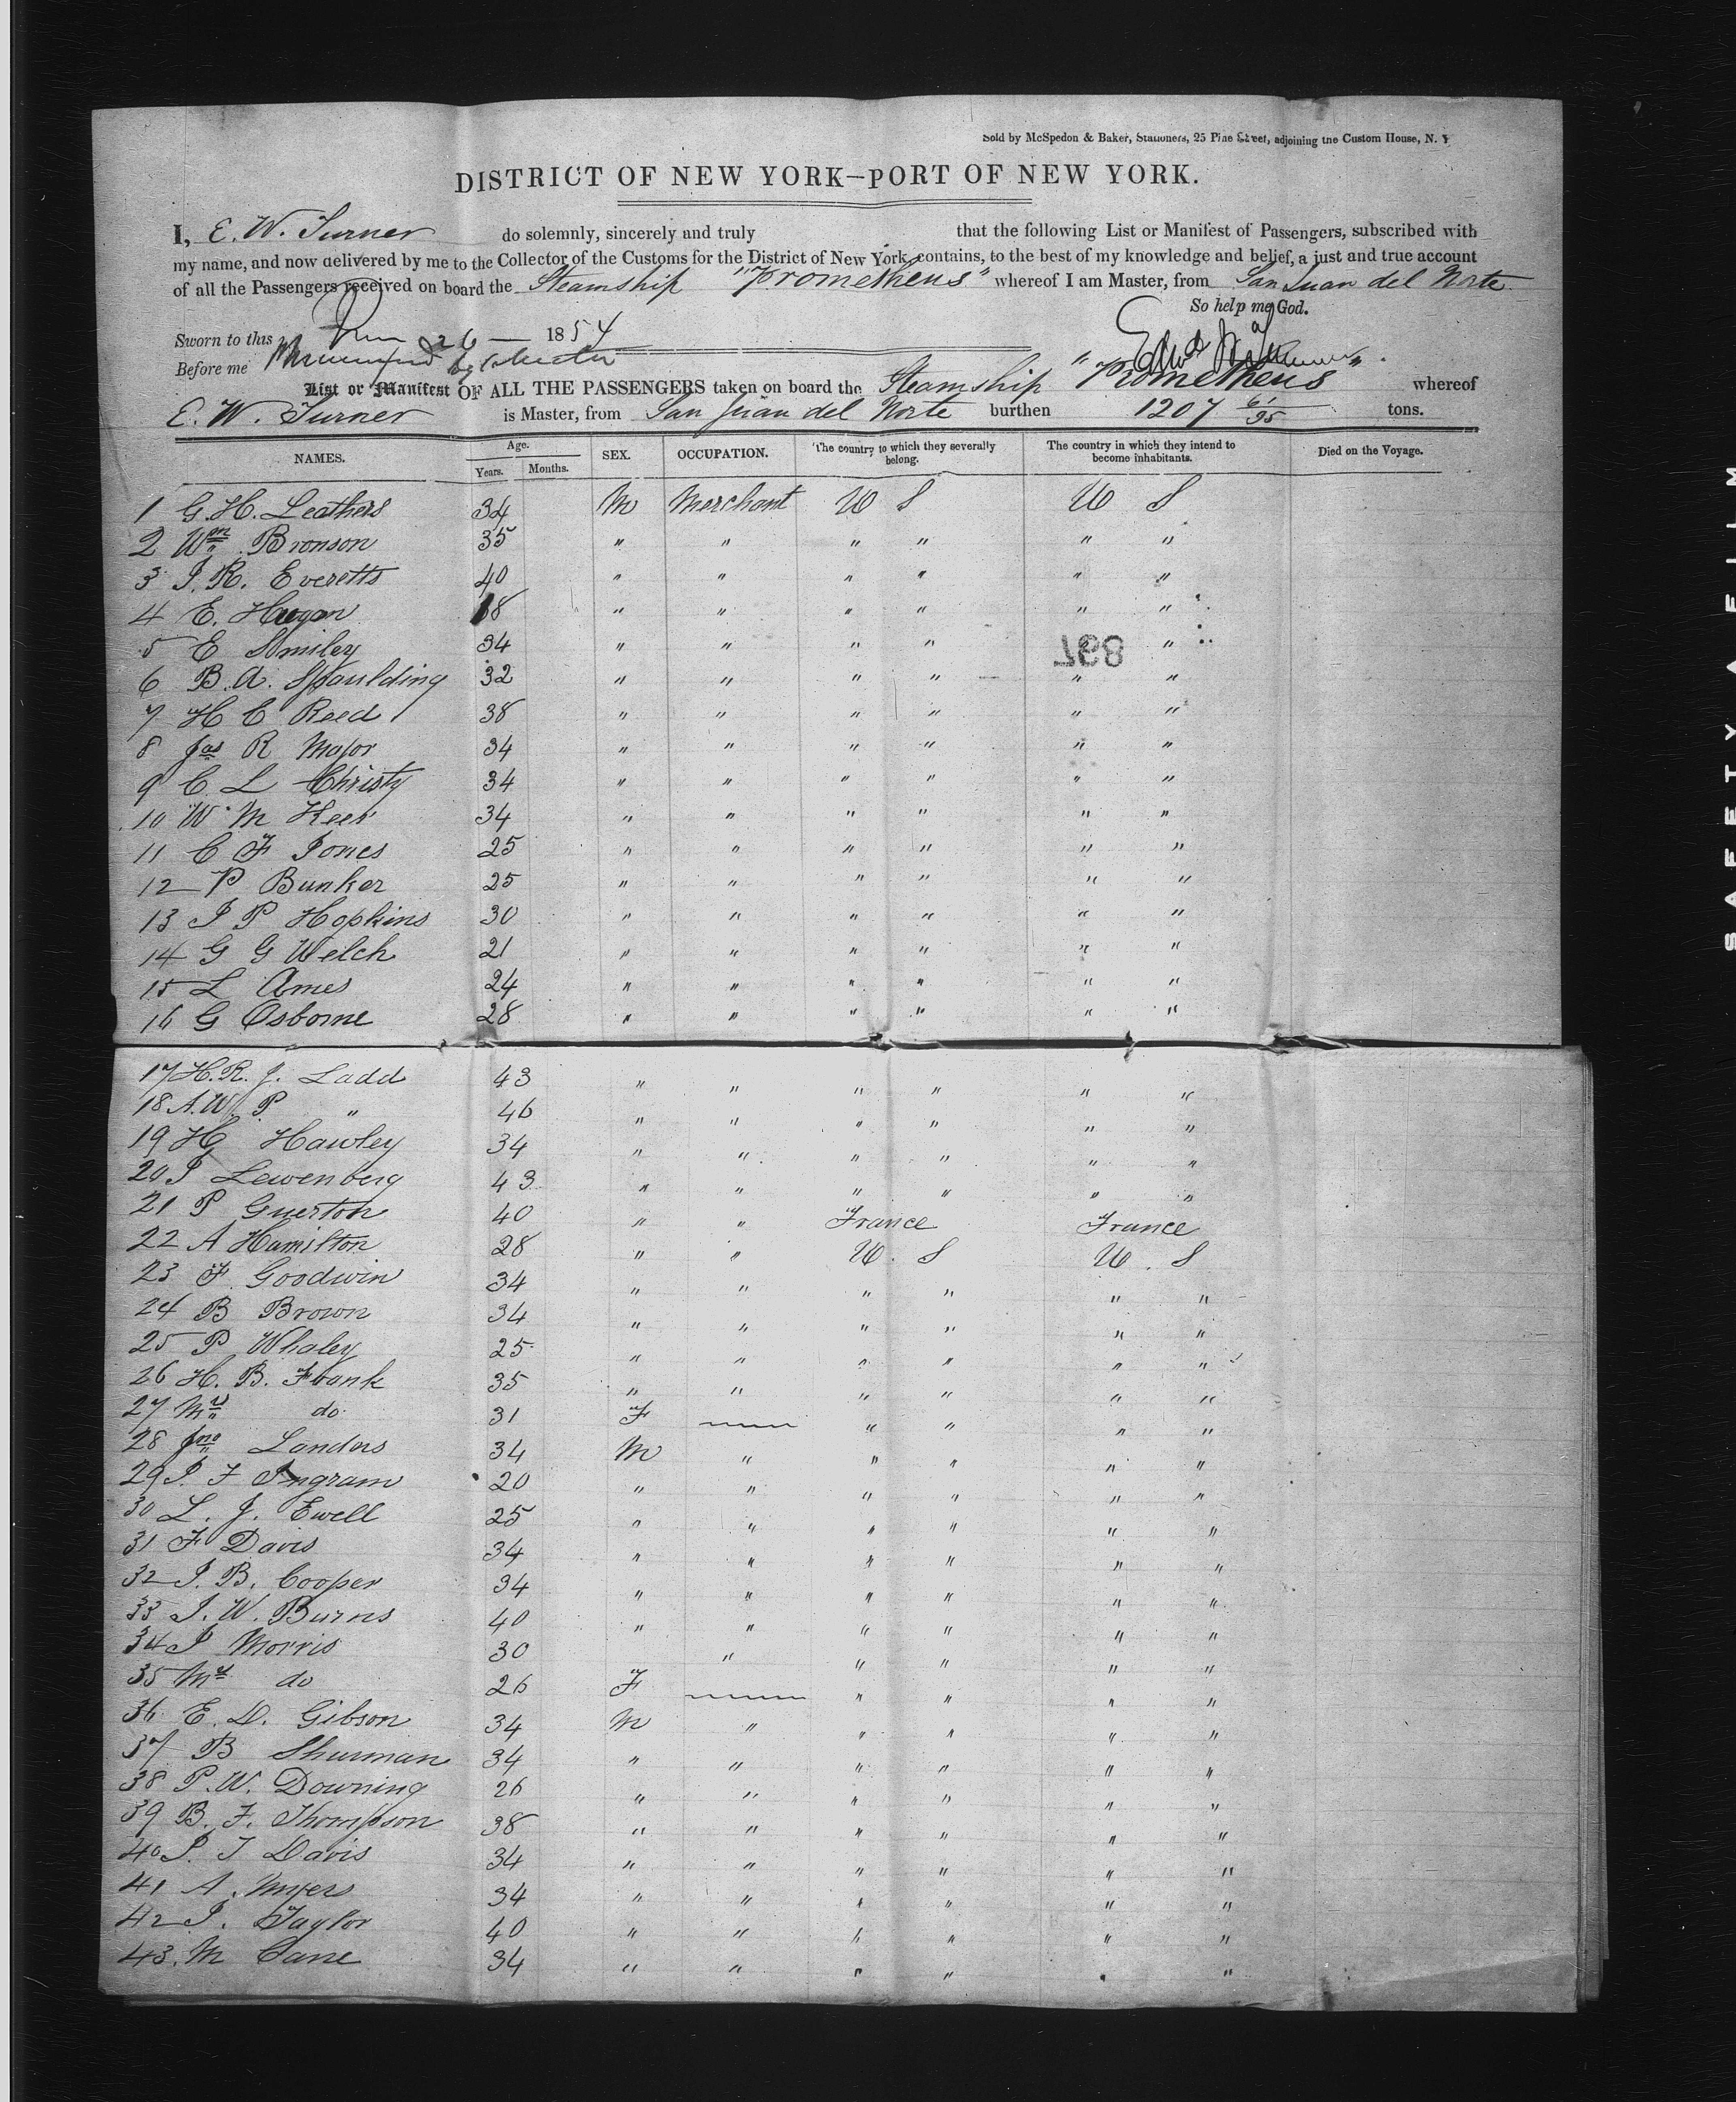 Sold by McSpedon & Baker, Stationers, 25 Pine Street, adjoining the Custom House, N. Y
DISTRICT OF NEW YORK—PORT OF NEW YORK.
I, E. W. Turner do solemnly, sincerely and truly that the following List or Manifest of Passengers, subscribed with
my name, and now delivered by me to the Collector of the Customs for the District of New York, contains, to the best of my knowledge and belief, a just and true account
of all the Passengers received on board the Steamship "Prometheus" whereof I am Master, from San Juan del Norte
So help me God.
Sworn to this 26 1854
Before me
List or Manifest OF ALL THE PASSENGERS taken on board the Steamship "Prometheus" whereof
E. W. Turner is Master, from San Juan del Norte burthen 1207 61/95 tons.
NAMES. Age. Years. Months. SEX. OCCUPATION. The country to which they severally belong. The country in which they intend to become inhabitants. Died on the Voyage.
1 G. H. Leathers 34 M Merchant U S U S
2 Wm Bronson 35 " " " " " "
3 J. R. Everetts 40 " " " " " "
4 E. 18 " " " " " "
5 E Smiley 34 " " " " "
897
6 B. A. Spaulding 32 " " " " " "
7 H C Reed 38 " " " " " "
8 Jas R Major 34 " " " " " "
9 C. L Christy 34 " " " " " "
10 W M Keer 34 " " " " " "
11 C F Jones 25 " " " " " "
12 P Bunker 25 " " " " " "
13 J P Hopkins 30 " " " " " "
14 G G Welch 21 " " " " " "
15 L Ames 24 " " " " " "
16 G Osborne 28 " " " " " "
17 H. R. J. Ladd 43 " " " " " "
18 A. W. P " 46 " " " " " "
19 H Hawley 34 " " " " " "
20 J Lewenberg 43 " " " " " "
21 P Guerton 40 " " France France
22 A Hamilton 28 " " U. S U. S
23 F Goodwin 34 " " " " " "
24 B Brown 34 " " " " " "
25 P Whaley 25 " " " " " "
26 H. B. Frank 35 " " " " " "
27 Mrs do 31 F " " " "
28 Jno Landers 34 M " " " " "
29 J. F Ingram 20 " " " " " "
30 L. J. Ewell 25 " " " " " "
31 F Davis 34 " " " " " "
32 J. B. Cooper 34 " " " " " "
33 J. W. Burns 40 " " " " " "
34 J Morris 30 " " " " "
35 Mrs do 26 F " " " "
36 E. D. Gibson 34 M " " " " "
37 B Shurman 34 " " " " " "
38 P. W. Downing 26 " " " " " "
39 B. F. Thompson 38 " " " " " "
40 J. T Davis 34 " " " " " "
41 A. Myers 34 " " " " " "
42 J. Taylor 40 " " " " " "
43. M Cane 34 " " " " " "
SAFETY FILM